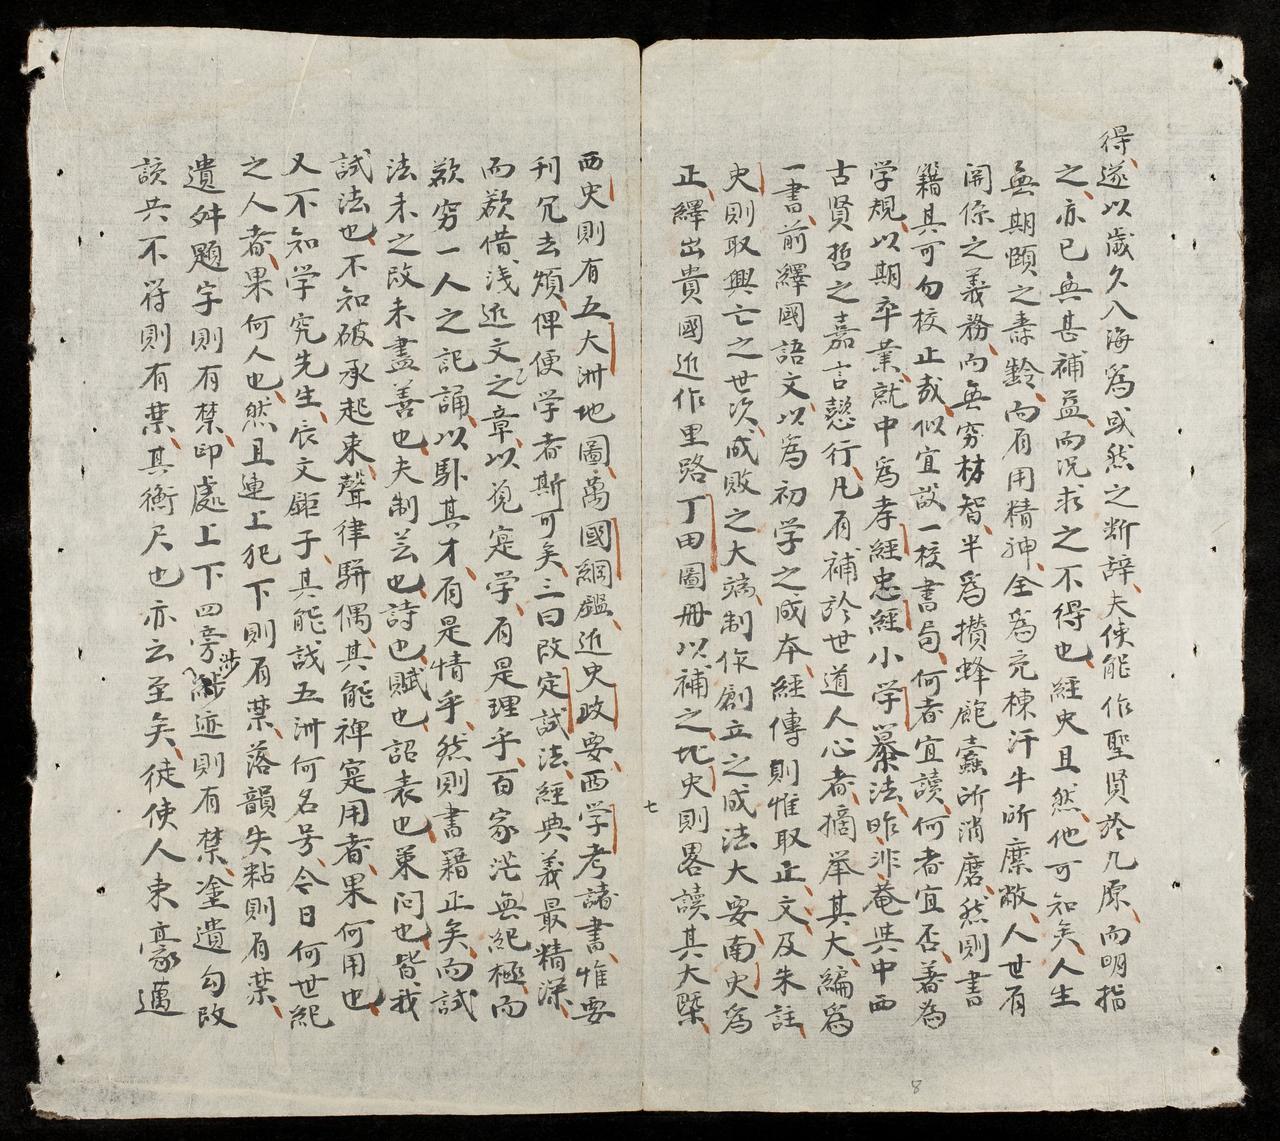 得遂以歲久入海爲或然之断辭夫使能作聖賢於九原而明指
之亦已無甚補益而况求之不得也經史且然他可知矣人生
無期頤之壽齡而有用精神全爲充棟汗牛所糜敝人世有
関係之義務而無穷材智半爲攢蜂龐蠹所消磨然則書
籍其可勿校正哉似宜設一校書局何者宜讀何者宜否著爲
学規以期卒業就中爲孝經忠經小学纂法昨淞菴與中西
古賢哲之嘉言懿行凡有補於世道人心者摘举其大編爲
一書前繹國語文以爲初学之成本經傳則惟取正文及朱註
史則取興亡之世次成敗之大端制作創立之成法大要南史爲
正繹出貴國近作里路丁田圖册以補之北史則畧讀其大槩
七
西史則有五大洲地圖萬國綱鑑近史政要西学考諸書惟要
刊冗去煩俾便学者斯可矣三曰改定試法經典義最精深
而欲借浅近文之章以覓寔学有是理乎百家茫無紀極而
欲穷一人之記誦以馭其才有是情乎然則書籍正矣而試
法未之改未盡善也夫制芸也詩也賦也詔表也策问也皆我
試法也不知破承起束聲律駢偶其能裨寔用者果何用也
又不知学究先生辰文鉅子其能識五洲何名号今日何世紀
之人者果何人也然且連上犯下則有禁落韻失粘則有禁
遺舛題字則有禁印處上下四旁涉迹則有禁塗遺勾改
該共不符則有禁其衡尺也亦云至矣徒使人束豪邁
8